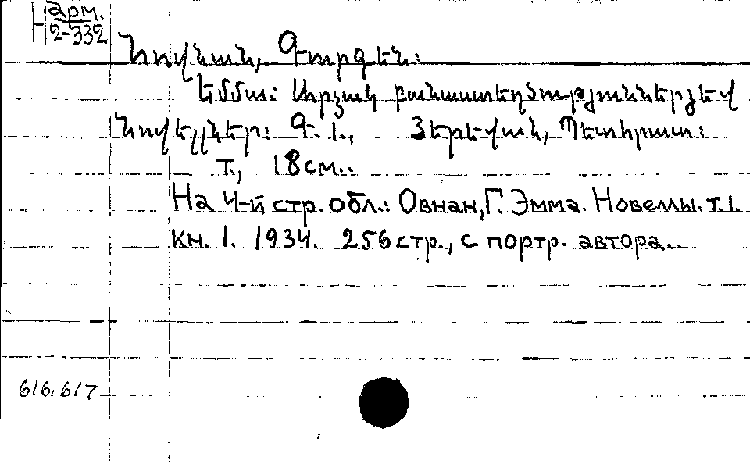 Н арм.
2-332
Հովնան, Գուրգեն:
Էմմա: Արձակ բանաստեղծություններ յեվ
նովելլներ: Գ. 1., Յերեվան, Պետհրատ:
т., 18 см..
На 4-й стр. обл.: Овнан, Г. Эмма. Новеллы. т. 1.
кн. 1. 1934. 256 стр., с портр. автора.
616.617